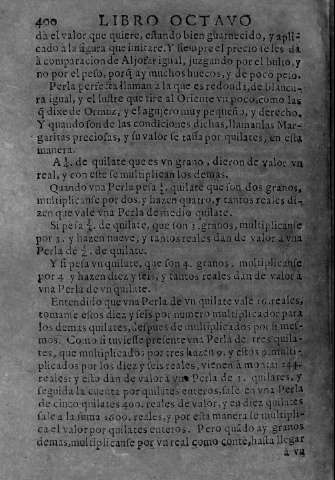 400 LIBRO OCTAVO
da el valor que quiere, estando bien guarnecido, y apli-
cado à la figura que imitare. Y siempre el precio se les da
à comparacion de Aljofar igual, juzgando por el bulto, y
no por el peso, porq̃ ay muchos huecos, y de poco peso.
Perla perfecta llaman a la que es redonda, de blancu-
ra igual, y el lustre que tire al Oriente vn poco, como las
q̃ dixe de Ormuz, y el agujero muy pequeño, y derecho.
Y quando son de las condiciones dichas, llamanlas Mar-
garitas preciosas, y su valor se tasa por quilates, en esta
manera.
A ¼. de quilate que es vn grano, dieron de valor vn
real, y con este se multiplican los demas.
Quando vna Perla pesa ½. quilate que son dos granos,
multiplicanse por dos, y hazen quatro, y tantos reales di-
zen que vale vna Perla de medio quilate.
Si pesa ¾. de quilate, que son 3. granos, multiplicanse
por 3. y hazen nueve, y tantos reales dan de valor à vna
Perla de ¾. de quilate.
Y si pesa vn quilate, que son 4. granos, multiplicanse
por 4 y hazen diez y seis, y tantos reales dan de valor à
vna Perla de vn quilate.
Entendido que vna Perla de vn quilate vale 16. reales,
tomanse estos diez y seis por numero multiplicador para
los demas quilates, despues de multiplicados por si mes-
mos. Como si tuviesse presente vna Perla de tres quila-
tes, que multiplicados por tres hazen 9. y estos 9. multi-
plicados por los diez y seis reales, vienen à montar 144.
reales: y esto dàn de valor à vna Perla de 3. quilates, y
seguida la cuenta por quilates enteros, sale en vna Perla
de cinco quilates 400. reales de valor, y en diez quilates
sale a la suma 1600. reales, y por esta manera se multipli-
ca el valor por quilates enteros. Pero quãdo ay granos
demas, multiplicanse por vn real como conte, hasta llegar
à vn